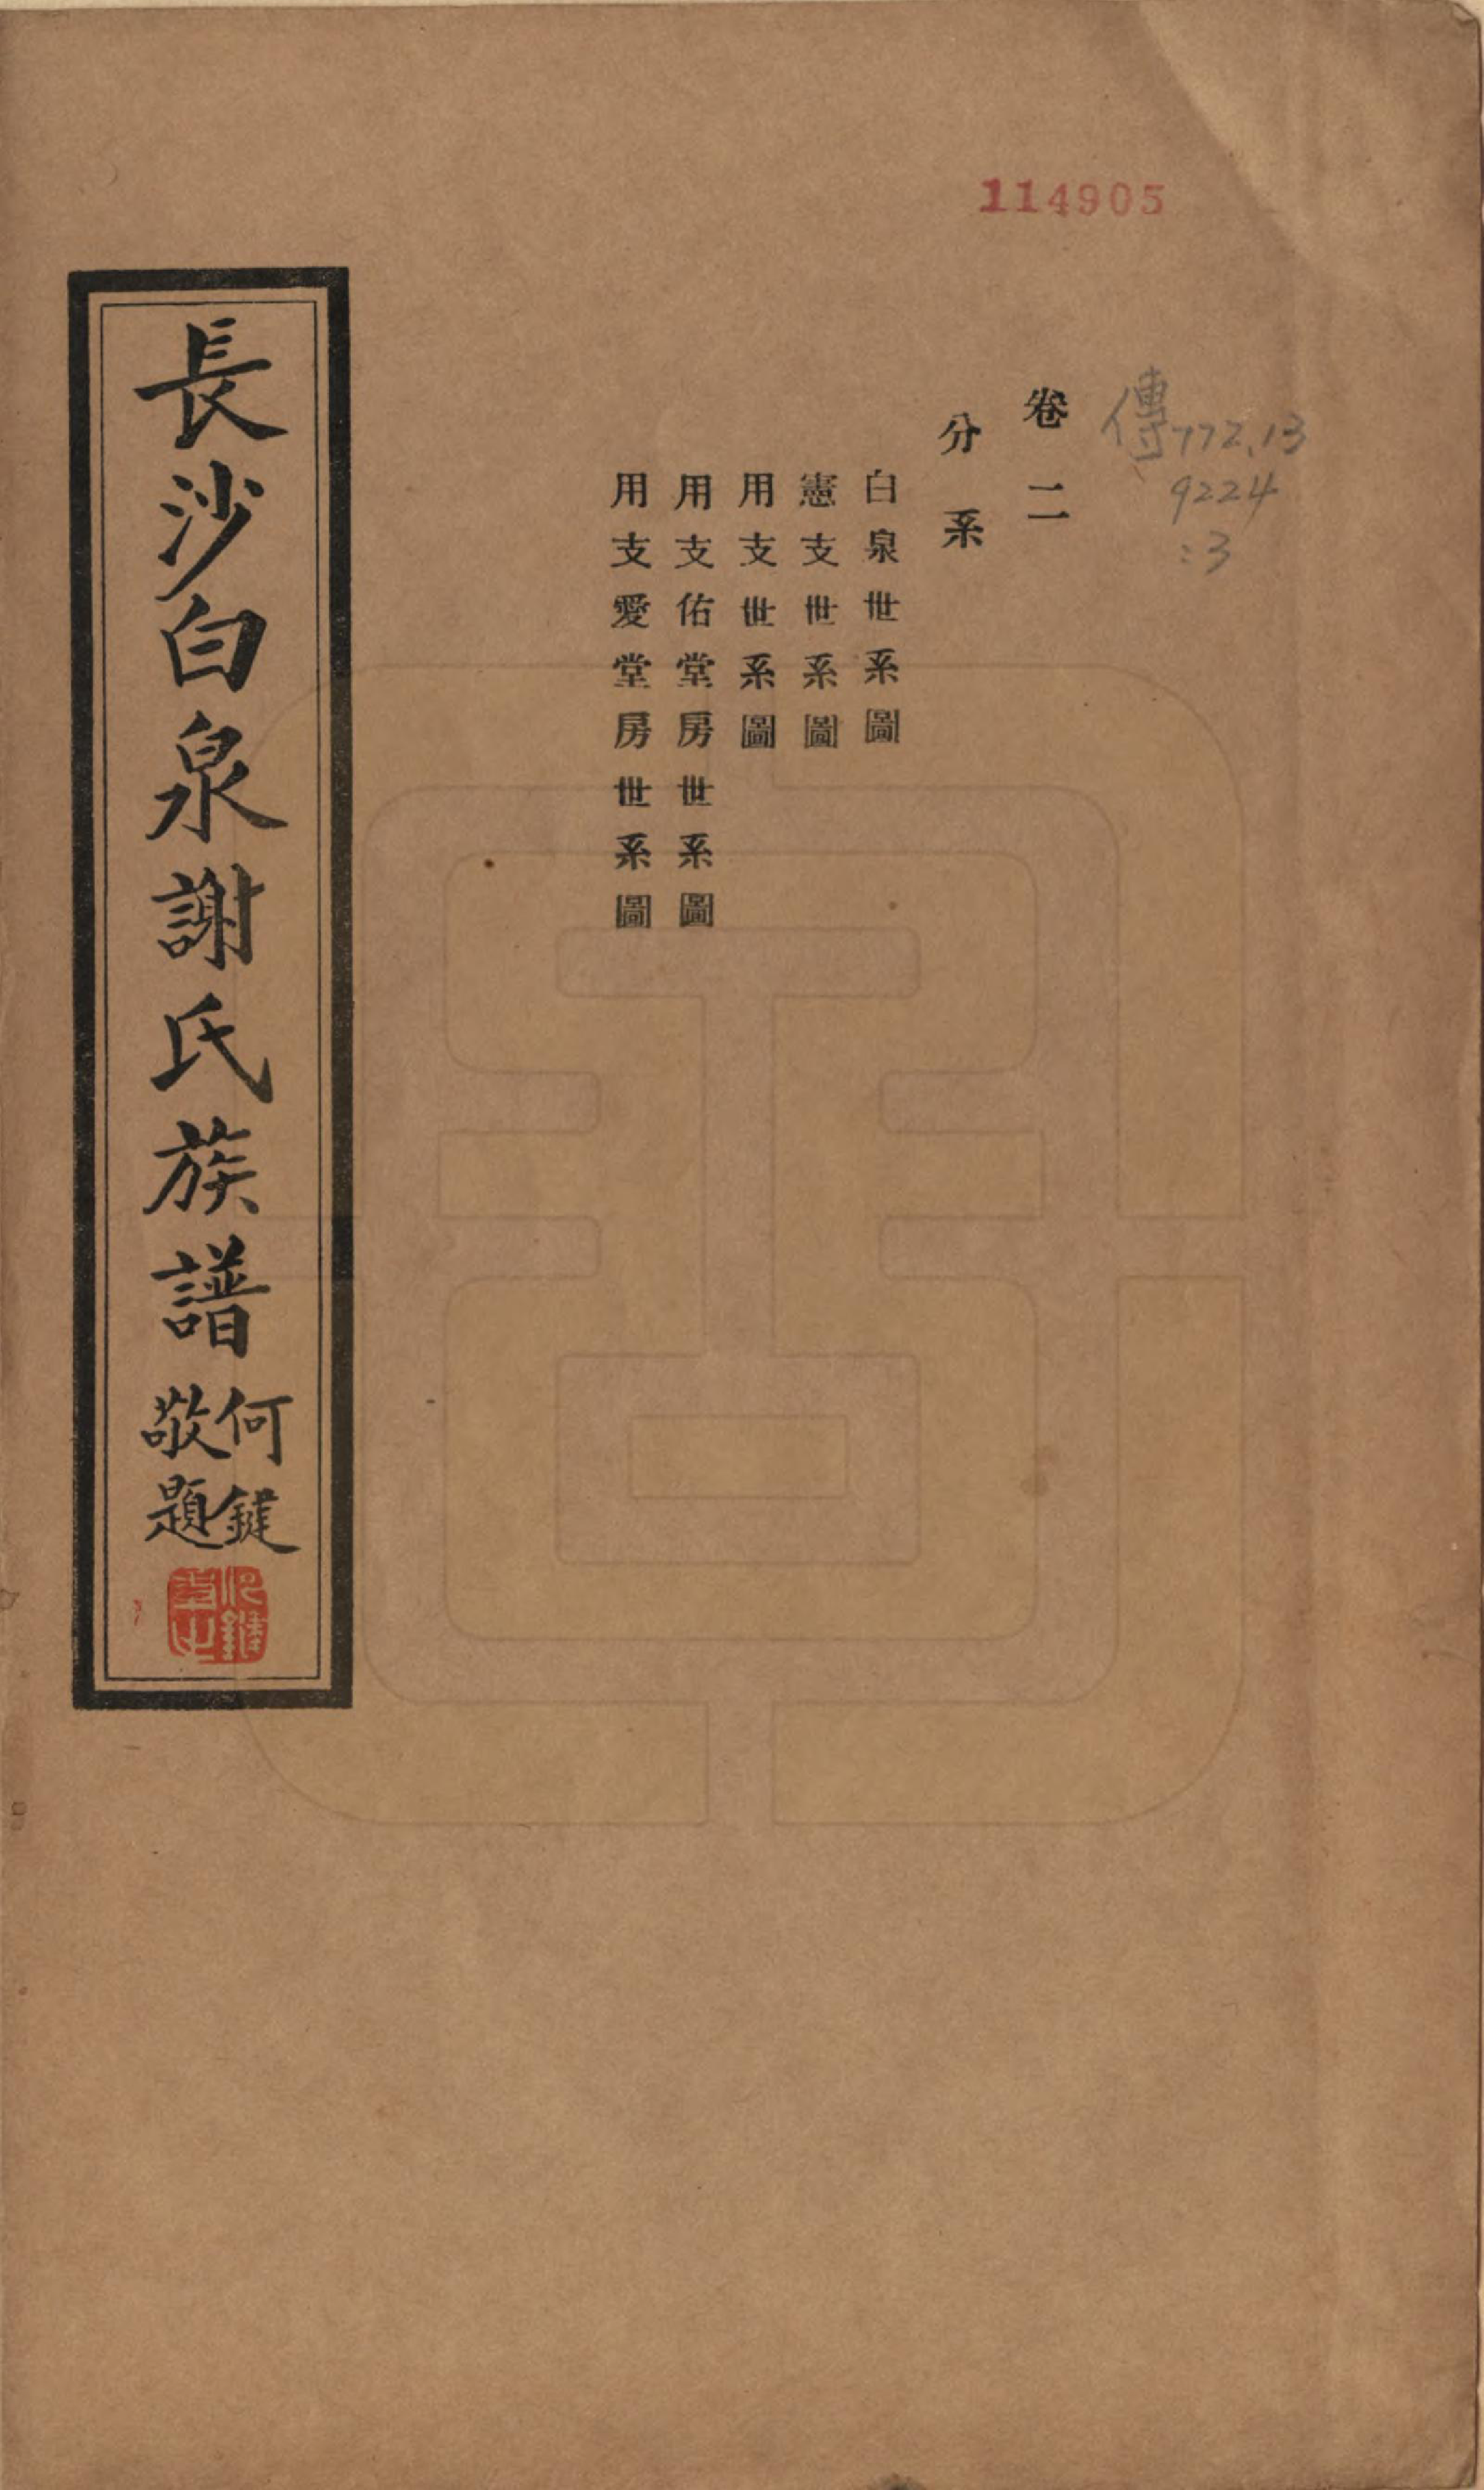 114905
傳772.13
9224
:3
卷二
分系
白泉世系圖
憲支世系圖
用支世系圖
用支佑堂房世系圖
用支愛堂房世系圖
長沙白泉謝氏族譜
何鍵
敬題